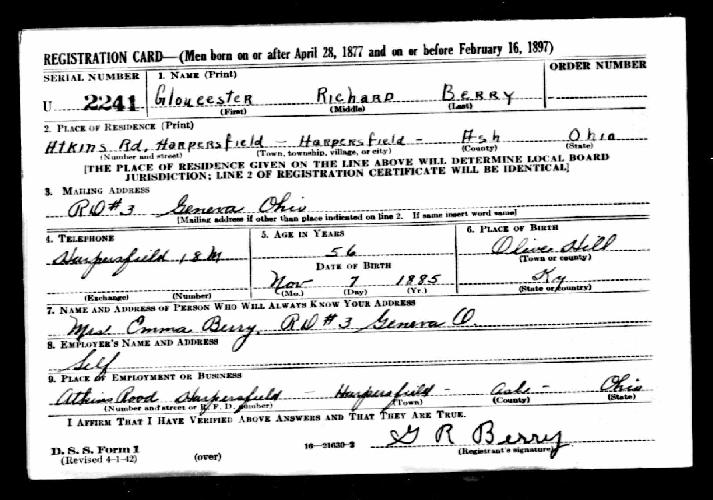 REGISTRATION CARD—(Men born on or after April 28, 1877 and on or before February 16, 1897)
SERIAL NUMBER 1. NAME (Print) ORDER NUMBER
U 2241 Gloucester Richard Berry
(First) (Middle) (Last)
2. PLACE OF RESIDENCE (Print)
Atkins Rd, Harpersfield - Harpersfield - Ash Ohio
(Number and street) (Town, township, village, or city) (County) (State)
[THE PLACE OF RESIDENCE GIVEN ON THE LINE ABOVE WILL DETERMINE LOCAL BOARD
JURISDICTION; LINE 2 OF REGISTRATION CERTIFICATE WILL BE IDENTICAL]
3. MAILING ADDRESS
RD#3 Geneva Ohio
[Mailing address if other than place indicated on line 2. If same insert word same]
4. TELEPHONE 5. AGE IN YEARS 6. PLACE OF BIRTH
Harpersfield 18M 56 Olive Hill
DATE OF BIRTH (Town or county)
Nov 7 1885 Ky
(Exchange) (Number) (Mo.) (Day) (Yr.) (State or country)
7. NAME AND ADDRESS OF PERSON WHO WILL ALWAYS KNOW YOUR ADDRESS
Mrs. Emma Berry, RD#3 Geneva O.
8. EMPLOYER'S NAME AND ADDRESS
Self
9. PLACE OF EMPLOYMENT OR BUSINESS
Atkins Road Harpersfield - Harpersfield - Ash - Ohio
(Number and street or R. F. D. number) (Town) (County) (State)
I AFFIRM THAT I HAVE VERIFIED ABOVE ANSWERS AND THAT THEY ARE TRUE.
G R Berry
D. S. S. Form 1 16—21630-2 (Registrant's signature)
(Revised 4-1-42) (over)